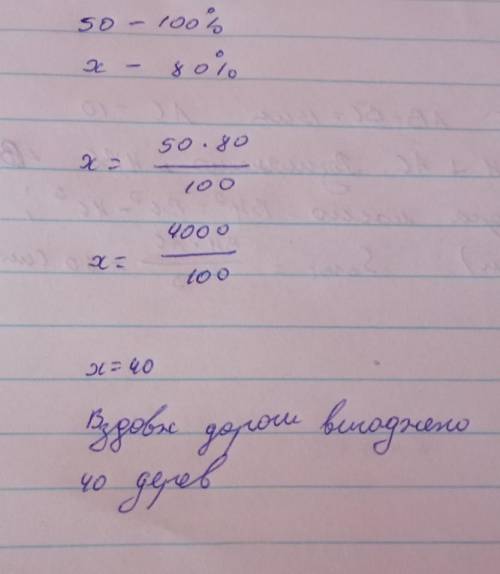 50 - 100%
x - 80%
x = 50 · 80 / 100
x = 4000 / 100
x = 40
Вздовж дороги висаджено
40 дерев